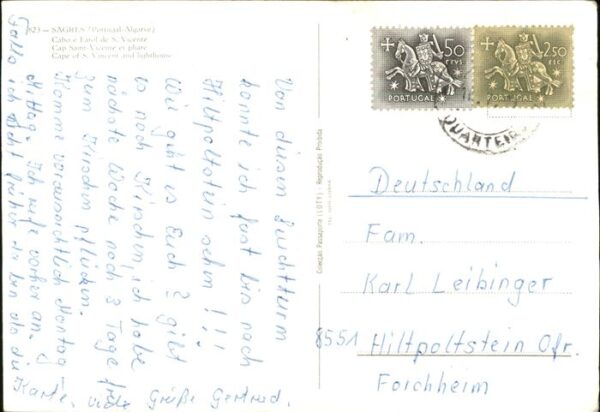 823 - SAGRES (Portugal-Algarve)
Cabo e Farol de S. Vicente
Cap Saint-Vincente et phare
Cape of S. Vincent and lighthouse
Von diesem Leuchtturm
konnte ich fast bis nach
Hiltpoltstein sehn !!!
Wie geht es Euch? gibt
es noch Kirschen, ich habe
nächste Woche noch 3 Tage frei
zum Kirschen pflücken.
Komme voraussichtlich Montag
Mittag. Ich rufe vorher an.
Falls ich nicht früher da bin als die
Karte, viele Grüße Gertrud.
Colecção Passaporte (LOTY) - Reprodução Proibida
50
CTVS
PORTUGAL
2$50
ESC
PORTUGAL
QUARTEIRA
Deutschland
Fam.
Karl Leibinger
8551 Hiltpoltstein Ofr.
Forchheim